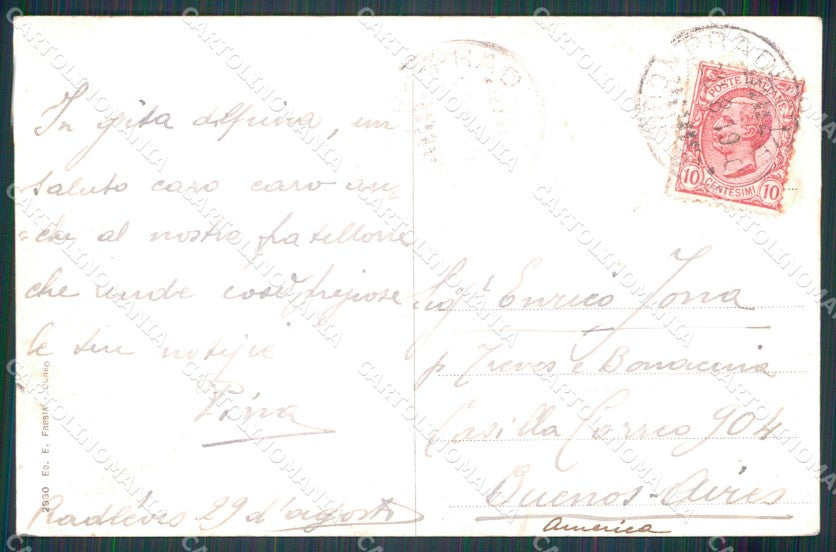 In gita alpina, un
saluto caro caro an
=che al nostro fratellone
che rende così preziose
le tue notizie
Pina
29 d'agosto
Sigʳ Enrico Jona
p Treves e Bonacina
Casilla Correo 904
Buenos-Aires
America
POSTE ITALIANE
10 CENTESIMI 10
2930 ED. E. FRESIA CUNEO
CARTOLINOMANIA